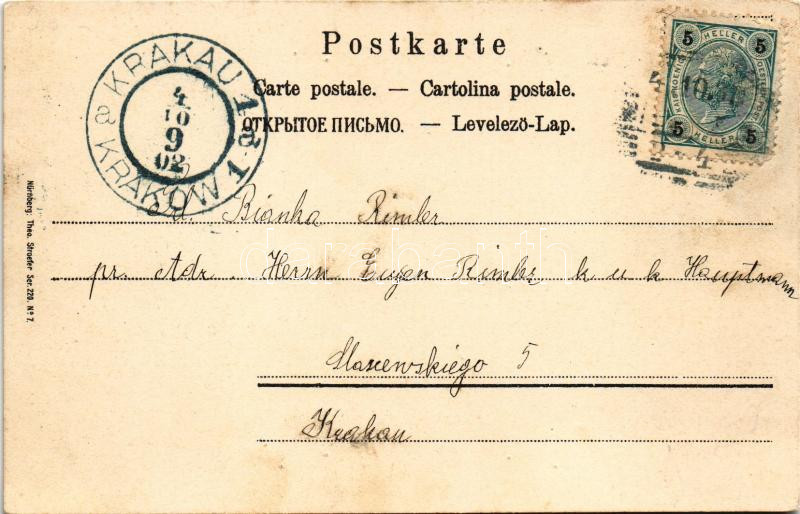 Postkarte
Carte postale. — Cartolina postale.
ОТКРЫТОЕ ПИСЬМО. — Levelező-Lap.
KRAKAU 1
a 1a
KRAKÓW 1
4
10
9
02
5 HELLER 5
5 HELLER 5
Bianka Rimler
pr. Adr. Herrn Eugen Rimler k u k Hauptmann
5
Krakau
Nürnberg, Theo. Stroefer Ser. 220. Nº 7.
darabanth